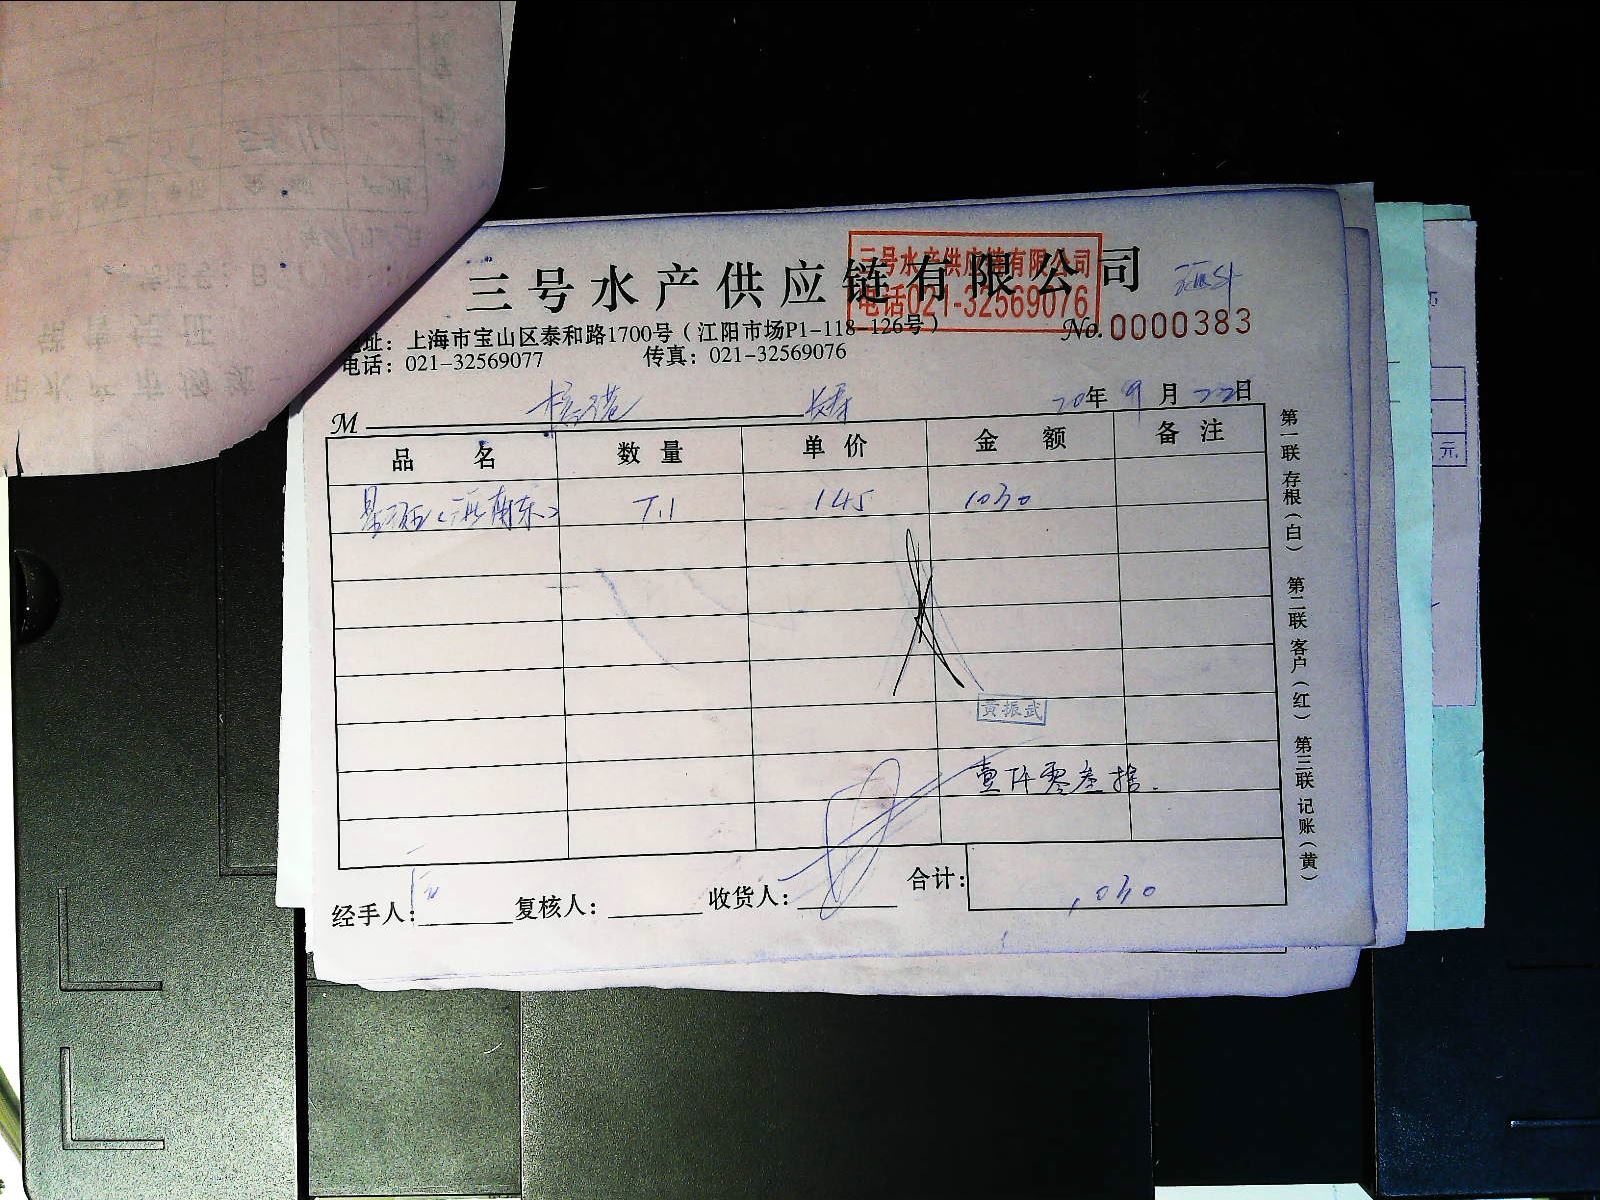 三号水产供应链有限公司
三号水产供应链有限公司
电话021-32569076
No.0000383
址：上海市宝山区泰和路1700号（江阳市场P1-118-126号）
电话：021-32569077 传真：021-32569076
M 20年 9月 22日
品名 数量 单价 金额 备注
7.1 145 1030
黄振武
壹仟零叁拾.
经手人： 复核人： 收货人： 合计： 1030
第一联 存根（白） 第二联 客户（红） 第三联 记账（黄）
元